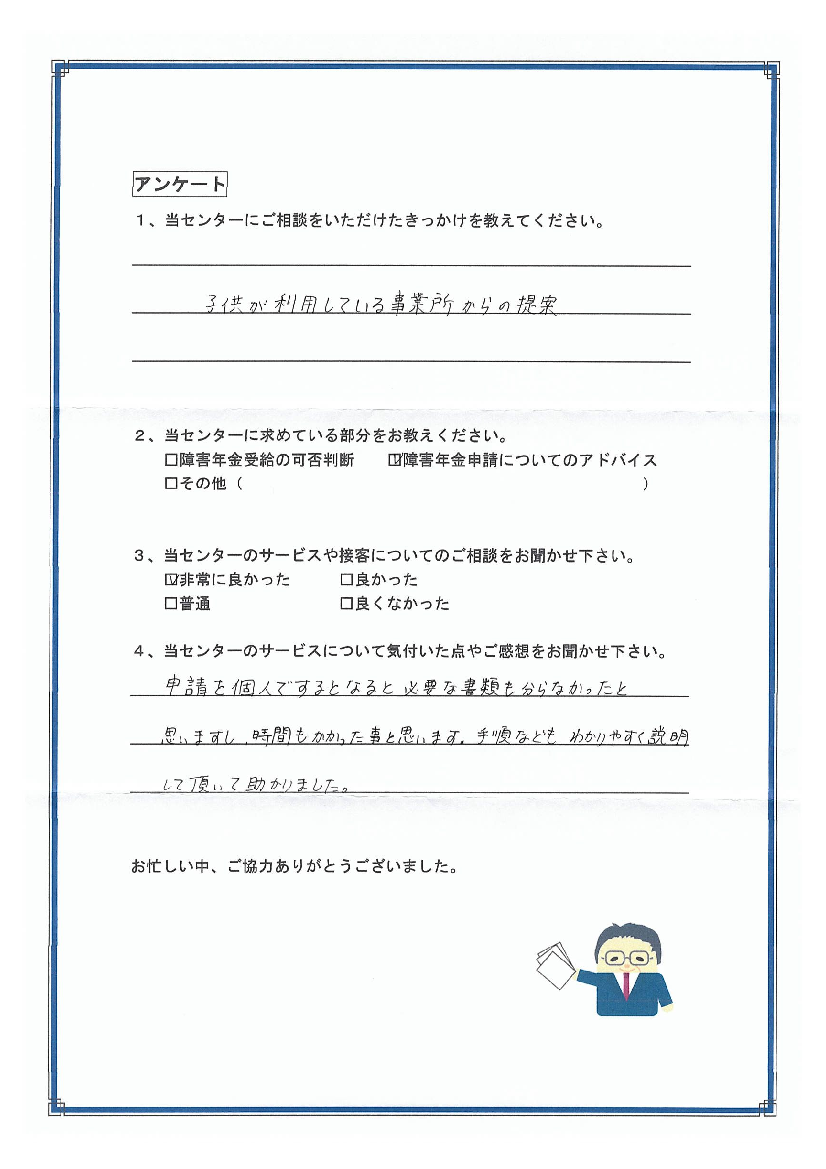 アンケート
1、当センターにご相談をいただけたきっかけを教えてください。
子供が利用している事業所からの提案
2、当センターに求めている部分をお教えください。
□障害年金受給の可否判断 ☑障害年金申請についてのアドバイス
□その他( )
3、当センターのサービスや接客についてのご相談をお聞かせ下さい。
☑非常に良かった □良かった
□普通 □良くなかった
4、当センターのサービスについて気付いた点やご感想をお聞かせ下さい。
申請を個人でするとなると必要な書類も分らなかったと
思いますし、時間もかかった事と思います。手順などもわかりやすく説明
して頂いて助かりました。
お忙しい中、ご協力ありがとうございました。